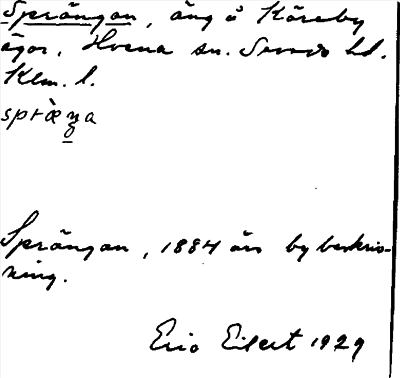 Sprängan, äng å Kåreby
ägor, Hvena sn. Sevede hd.
Klm. l.
Sprängan, 1884 års by beskris-
ning.
Eric Eilert 1929